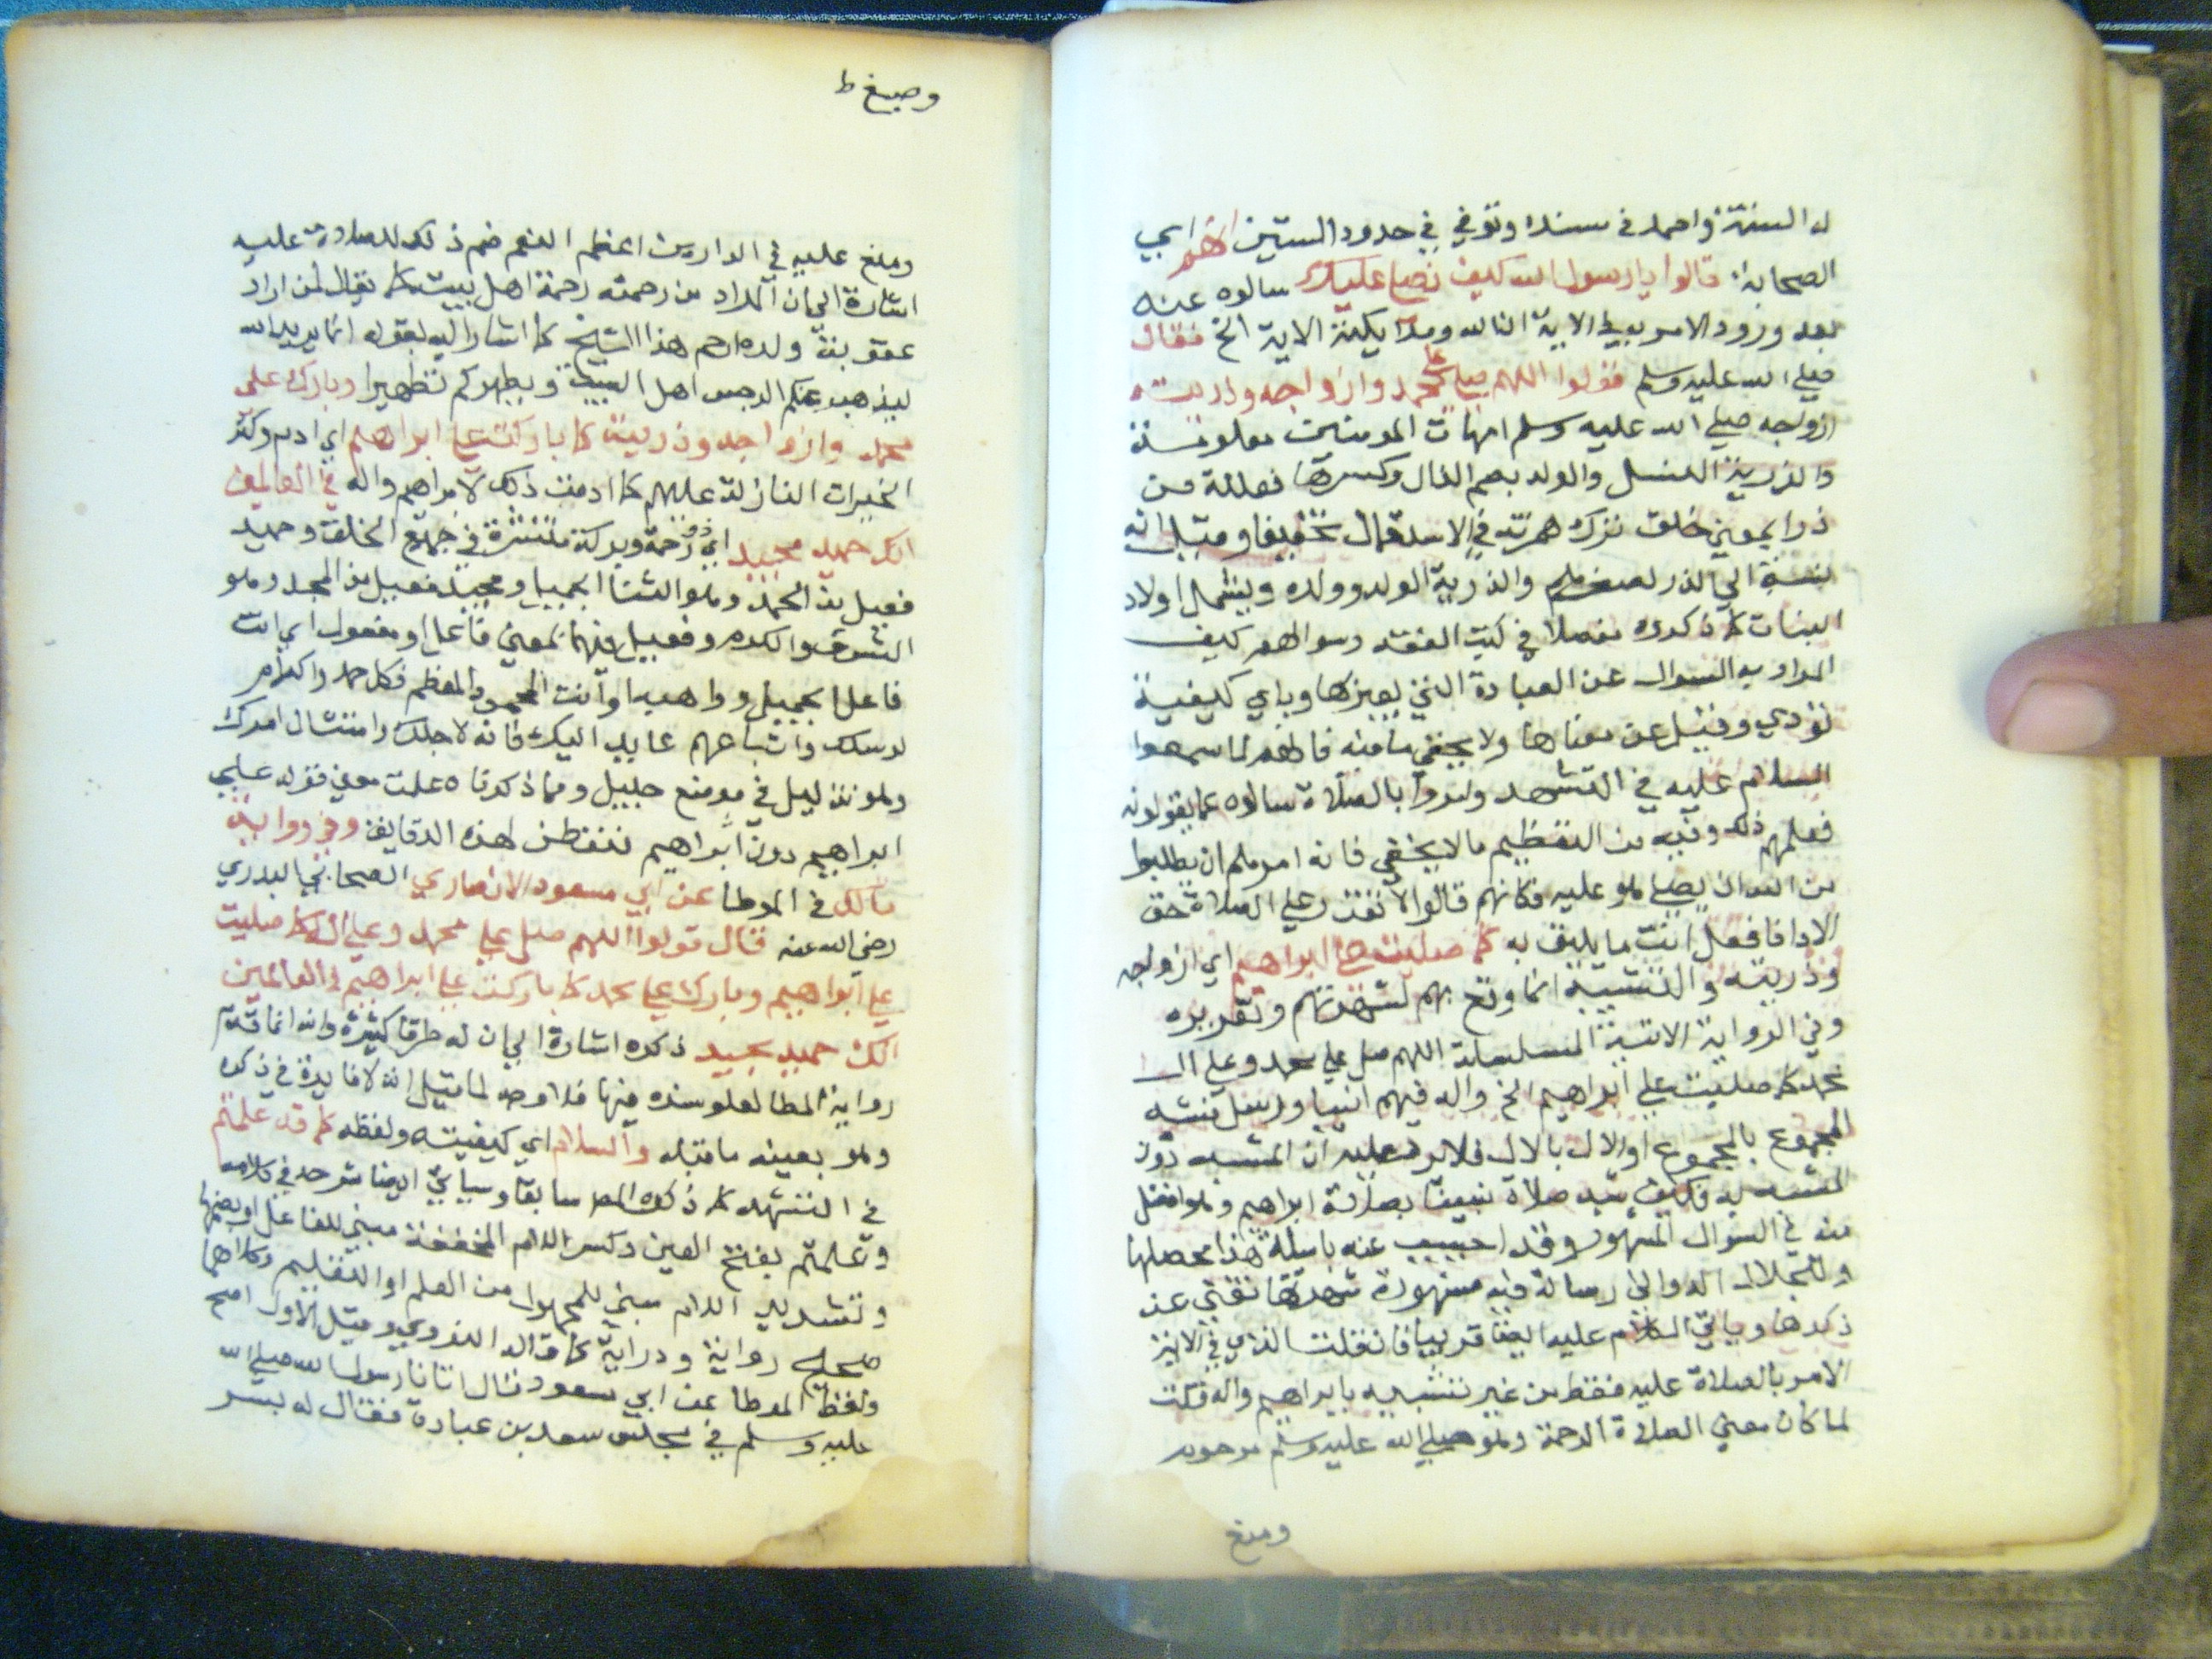 له الستة واحمد في مسنده وتوفي في حدود الستين انهم اي
الصحابة قالوا يا رسول الله كيف نصلي عليك سالوه عنه
بعد ورود الامر به في الاية ان الله وملائكته الاية الخ فقال
صلى الله عليه وسلم قولوا اللهم صل على محمد وازواجه وذريته
ازواجه صلي الله عليه وسلم امهات المومنين معلومة
والذرية النسل والولد بضم الذال وكسرها فعلية من
ذرا بمعني خلق ترك همزته في الاستعمال تخفيفا وقيل انه
نسبة الي الذر لصغرهم والذرية الولد وولده ويشمل اولاد
البنات كما ذكروه مفصلا في كتب الفقه وسوالهم كيف
المراد به السوال عن العبادة التي بغيرها وباي كيفية
تؤدي وقيل عن معناها ولا يخفي ما فيه فانهم لما سمعوا
السلام عليه في التشهد وامروا بالصلاة سالوه عما يقولونه
فعلمهم ذلك وفيه من التعظيم ما لا يخفي فانه امرهم ان يطلبوا
من الله ان يصلي هو عليه فكانهم قالوا لا نقدر علي الصلاة حق
الادا فافعل انت ما يليق به كما صليت علي ابراهيم اي ازواجه
وذريته والتشبيه انما وقع بهم لشهرتهم وتقريره
وفي الرواية الاتية المسلسلة اللهم صل علي محمد وعلي ال
محمد كما صليت علي ابراهيم الخ واله فيهم انبيا ورسل فشبه
المجموع بالمجموع او الال بالال فلا يرد عليه ان المشبه دون
المشبه به فكيف شبه صلاة نبينا بصلاة ابراهيم وهو افضل
منه في السوال المشهور وقد اجيب عنه باسيلة هذا محصلها
وللجلال الدواني رسالة فيه مشهورة شهرتها تغني عن
ذكرها وياتي الكلام عليه ايضا قريبا فان قلت الذي في الاية
الامر بالصلاة عليه فقط من غير تشبيه بابراهيم واله قلت
لما كان معني الصلاة الرحمة وهو صلي الله عليه وسلم مرحوم
ومنع
وصيغ ط
ومنع عليه في الدارين اعظم النعم ضم ذلك للصلاة عليه
اشارة الي ان المراد من رحمته رحمة اهل بيته كما يقال لمن اراد
عقوبة ولده ارحم هذا الشيخ كما اشار اليه بقوله انما يريد الله
ليذهب عنكم الرجس اهل البيت ويطهركم تطهيرا وبارك على
محمد وازواجه وذريته كما باركت علي ابراهيم اي ادم وكثر
الخيرات النازلة عليهم كما ادمت ذلك لابراهيم واله في العالمين
انك حميد مجيد اي ذو رحمة وبركة منتشرة في جميع الخلق وحميد
فعيل من الحمد وهو الثنا الجميل ومجيد فعيل من المجد وهو
الشرف والكرم وفعيل فيهما بمعني فاعل او مفعول اي انت
فاعل الجميل وواهبه او انت المحمود والمعظم فكل حمد واكرام
لرسلك واتباعهم عايد اليك فانه لاجلك وامتثال امرك
وهو تذييل في موضع جليل ومما ذكرناه علمت معني قوله علي
ابراهيم دون ال ابراهيم فتفطن لهذه الدقايق وفي رواية
مالك في الموطا عن ابي مسعود الانصاري الصحابي البدري
رضي الله عنه قال قولوا اللهم صل علي محمد وعلي اله كما صليت
علي ابراهيم وبارك علي محمد كما باركت علي ابراهيم في العالمين
انك حميد مجيد ذكره اشارة الي ان له طرقا كثيرة وانه انما قدم
رواية الموطا لعلو سنده فيها فلا وجه لما قيل انه لا فايدة في ذكره
وهو بعينه ما قبله والسلام اي كيفيته ولفظه كما قد علمتم
في التشهد كما ذكره المص سابقا وسياتي ايضا شرحه في كلامه
وعلمتم بفتح العين وكسر اللام المخففة مبني للفاعل او بضمها
وتشديد اللام مبني للمجهول من العلم او التعليم وكلاهما
صحيح رواية ودراية كما قاله النووي وقيل الاول اصح
ولفظ الموطا عن ابي مسعود قال اتانا رسول الله صلي الله
عليه وسلم في مجلس سعد بن عبادة فقال له بشر